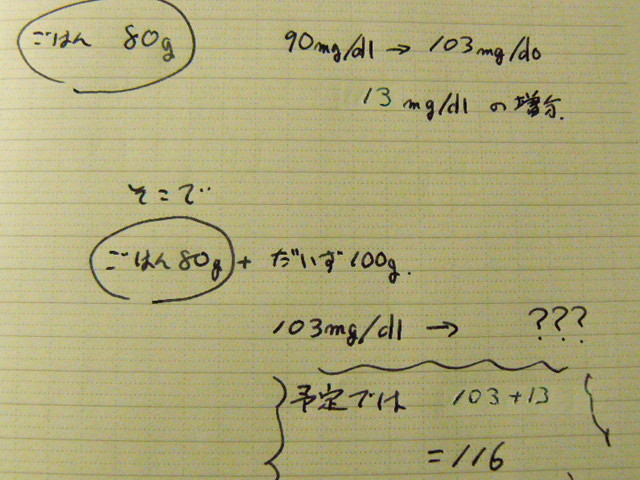 ごはん 80g 90mg/dl → 103mg/dl
13 mg/dl の増分.
そこで
ごはん80g + だいず100g.
103mg/dl → ???
予定では 103+13
=116